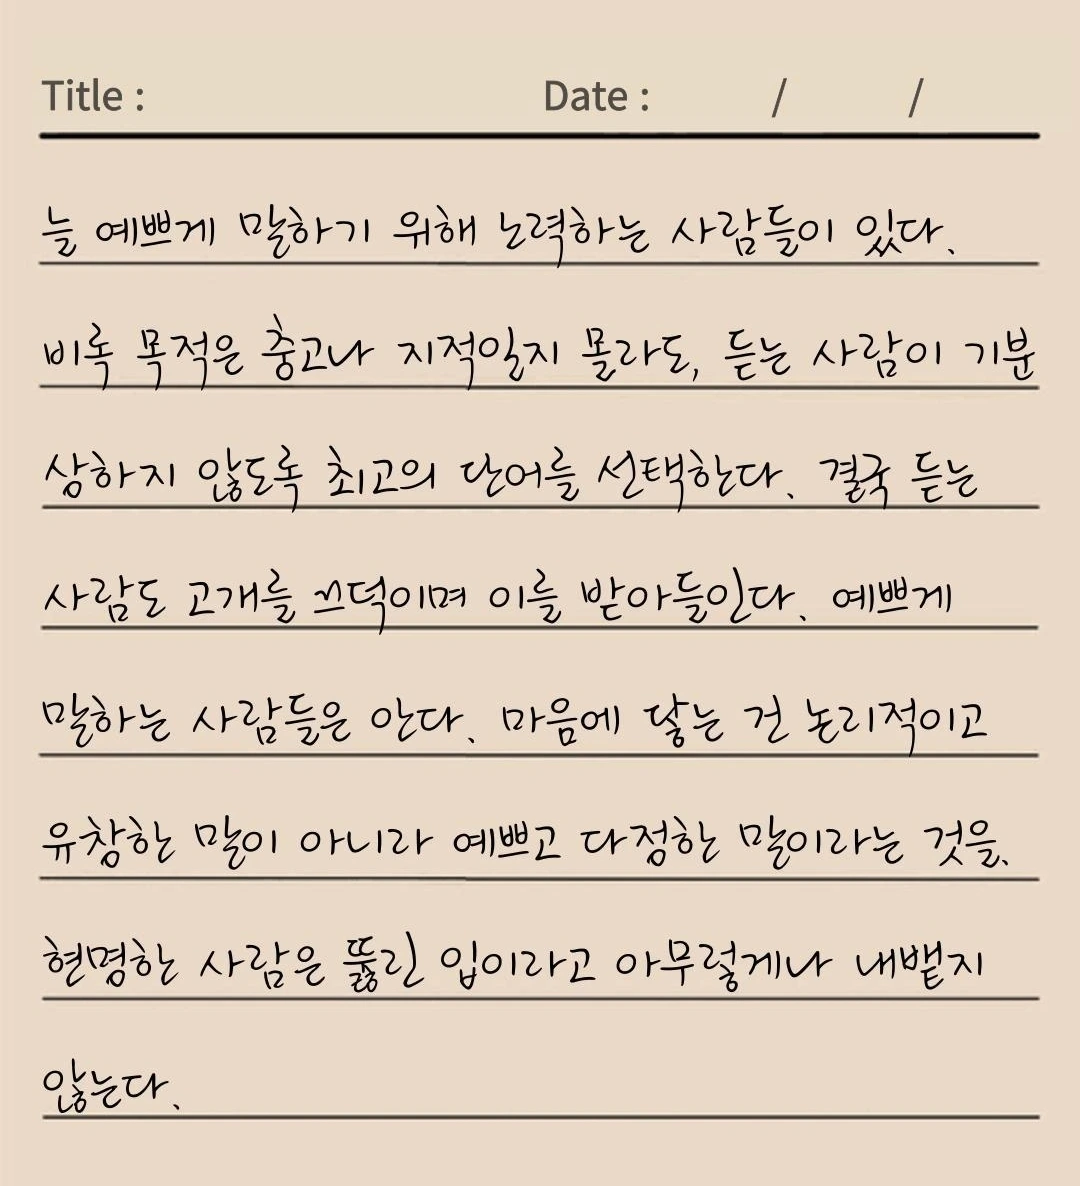 Title : Date : / /
늘 예쁘게 말하기 위해 노력하는 사람들이 있다.
비록 목적은 충고나 지적일지 몰라도, 듣는 사람이 기분
상하지 않도록 최고의 단어를 선택한다. 결국 듣는
사람도 고개를 끄덕이며 이를 받아들인다. 예쁘게
말하는 사람들은 안다. 마음에 닿는 건 논리적이고
유창한 말이 아니라 예쁘고 다정한 말이라는 것을.
현명한 사람은 뚫린 입이라고 아무렇게나 내뱉지
않는다.